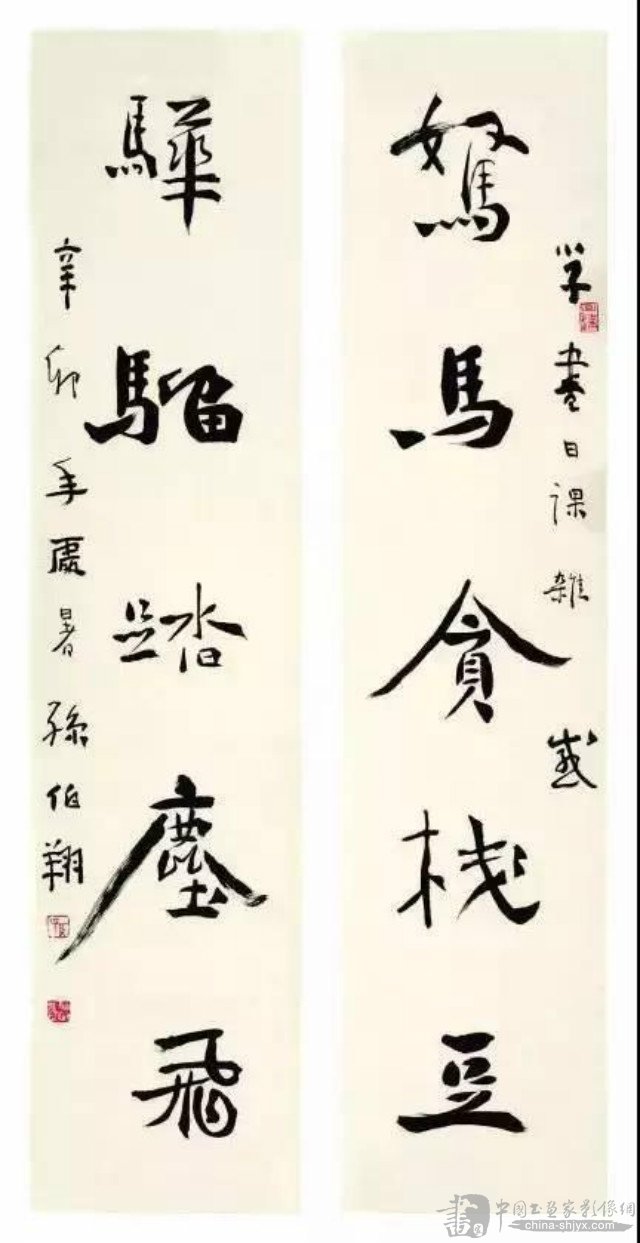 学書日课雜感
駑馬貪栈豆
驊騮踏塵飛
辛卯年處暑孫伯翔
中国书画家影像網
china-shjyx.com